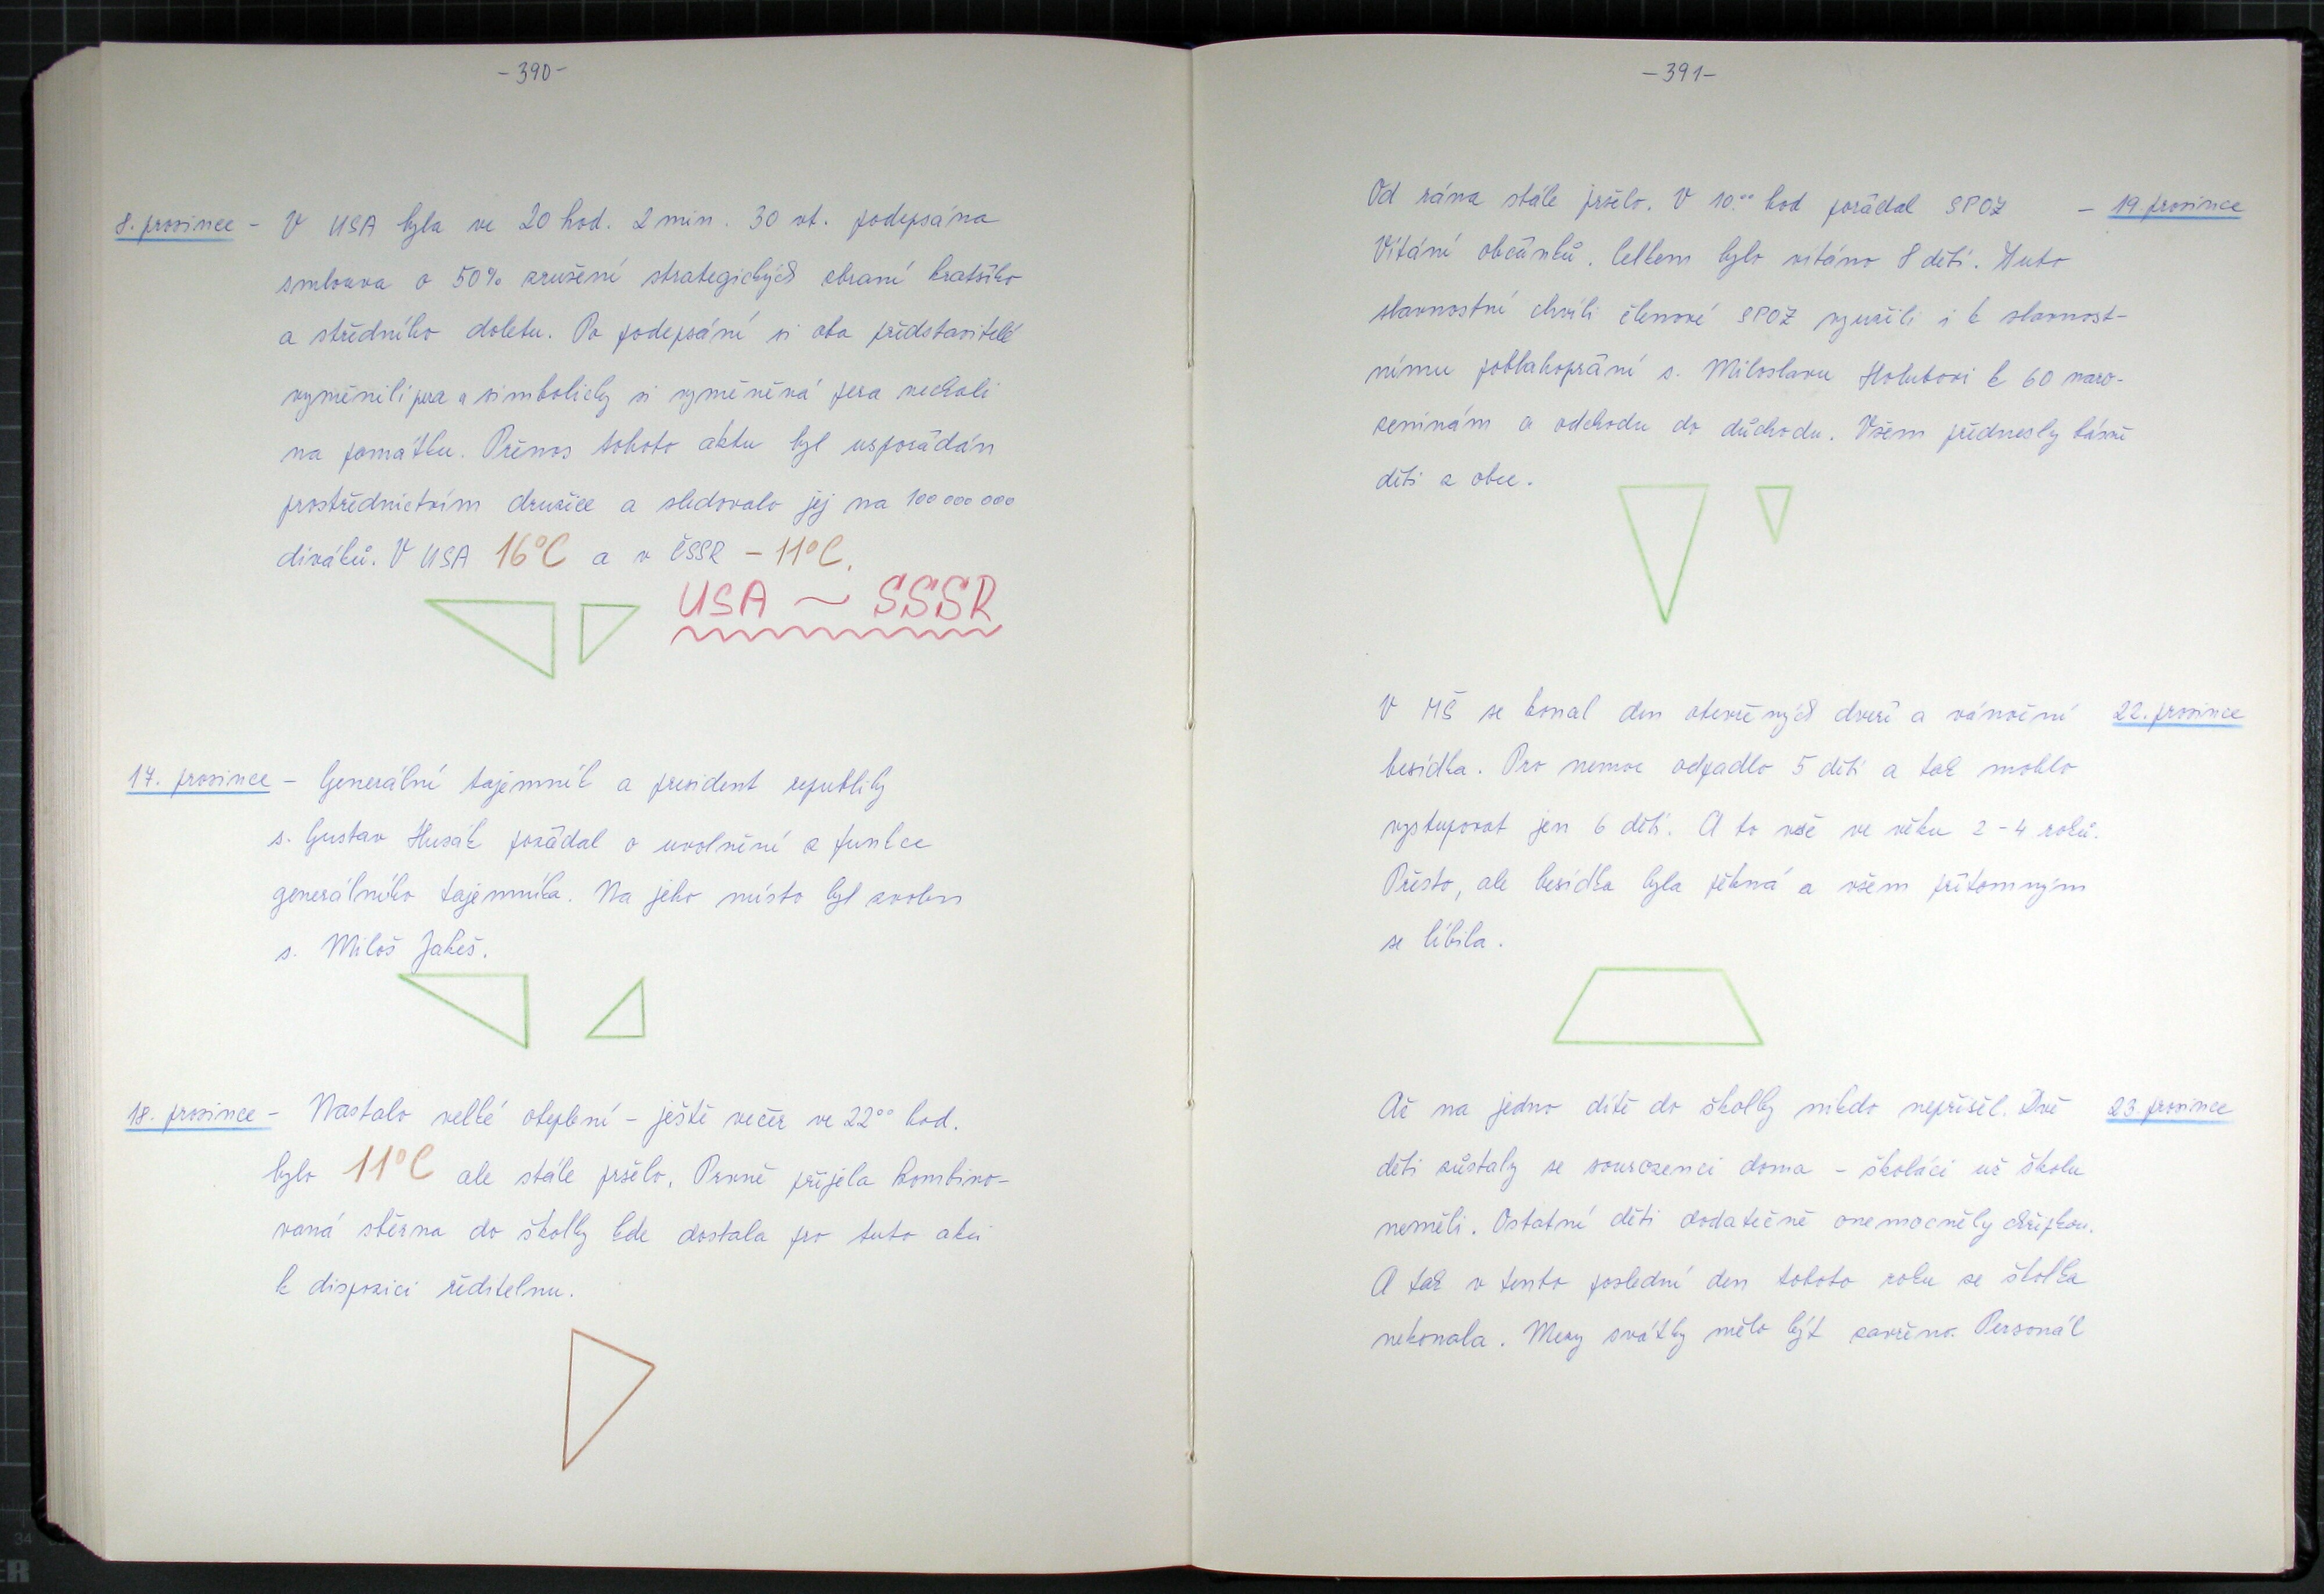 -390-
8. prosince - V USA byla ve 20 hod. 2 min. 30 vt. podepsána
smlouva o 50% zrušení strategických zbraní kratšího
a středního doletu. Po podepsání si oba představitelé
vyměnili pera a simbolicky si vyměněná pera nechali
na památku. Přenos tohoto aktu byl uspořádán
prostřednictvím družice a sledovalo jej na 100 000 000
diváků. V USA 16°C a v ČSSR - 11°C.
USA ~ SSSR
17. prosince - Generální tajemník a president republiky
s. Gustav Husák požádal o uvolnění z funkce
generálního tajemníka. Na jeho místo byl zvolen
s. Miloš Jakeš.
18. prosince - Nastalo velké oteplení - ještě večer ve 22⁰⁰ hod.
bylo 11°C ale stále pršelo. Prvně přijela kombino-
vaná stěrna do školky kde dostala pro tuto akci
k dispozici ředitelnu.
-391-
Od rána stále pršelo. V 10.⁰⁰ hod pořádal SPOZ - 19 prosince
Vítání občánků. Celkem bylo vítáno 8 dětí. Tuto
slavnostní chvíli členové SPOŽ využili i k slavnost-
nímu poblahopřání s. Miloslavu Holubovi k 60 naro-
zeninám a odchodu do důchodu. Všem přednesly básně
děti z obce.
V MŠ se konal den otevřených dveří a vánoční 22. prosince
besídka. Pro nemoc odpadlo 5 dětí a tak mohlo
vystupovat jen 6 dětí. A to vše ve věku 2-4 roků.
Přesto, ale besídka byla pěkná a všem přítomným
se líbila.
Až na jedno dítě do školky nikdo nepřišel. Dvě 23. prosince
děti zůstaly se sourozenci doma - školáci už školu
neměli. Ostatní děti dodatečně onemocněly chřipkou.
A tak v tento poslední den tohoto roku se školka
nekonala. Mezy svátky mělo být zavřeno. Personál